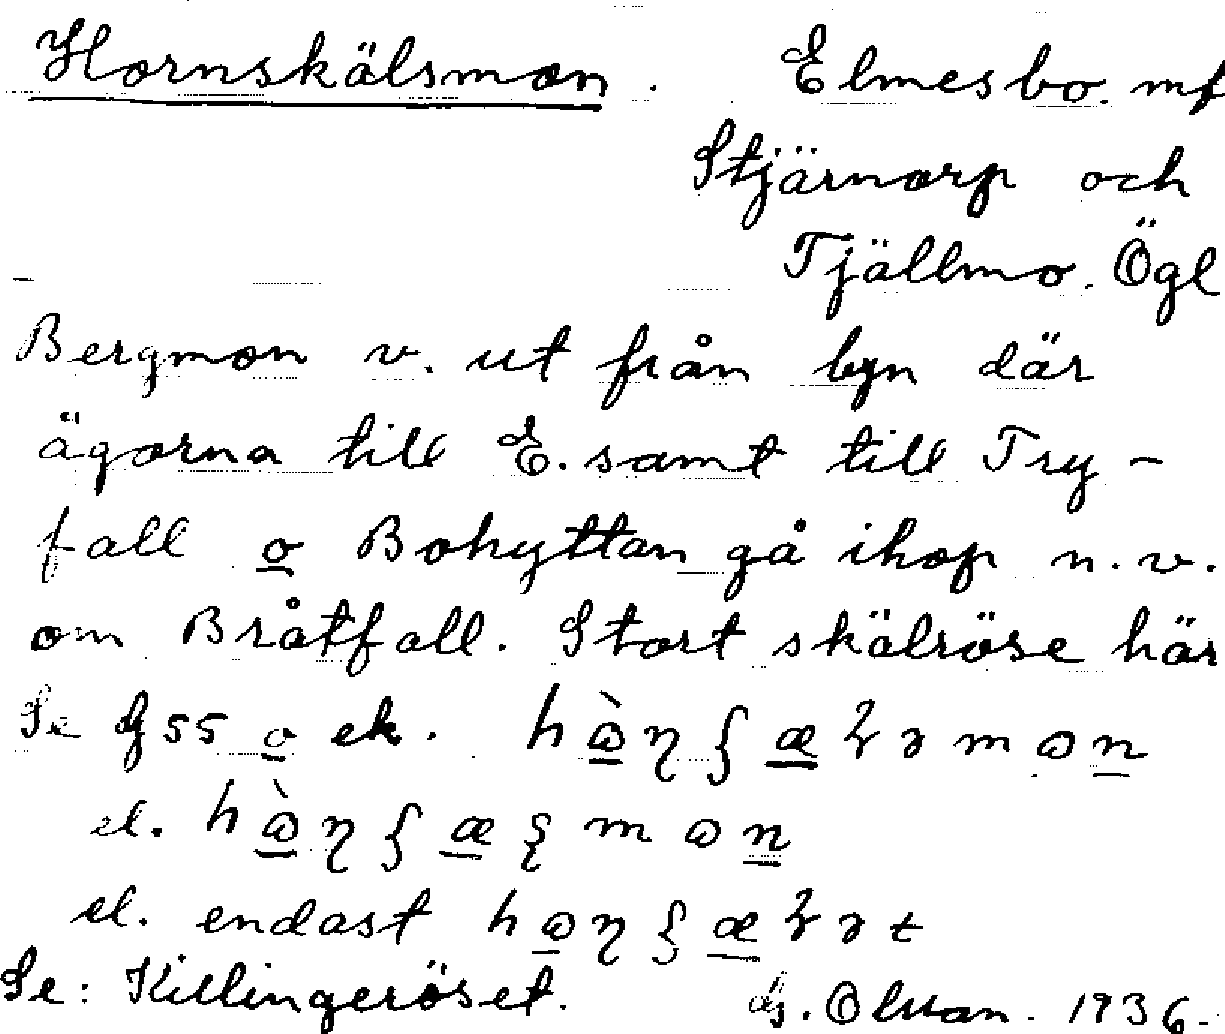 Hornskälsmon. Elmesbo. mf
Stjärnorp och
Tjällmo. Ögl
Bergmon v. ut från byn där
ägorna till E. samt till Try-
fall o Bohyttan gå ihop n.v.
om Bråtfall. Stort skälröse här
Se G55 o ek.
el.
el. endast
Se: Killingeröset. Olsson. 1936.